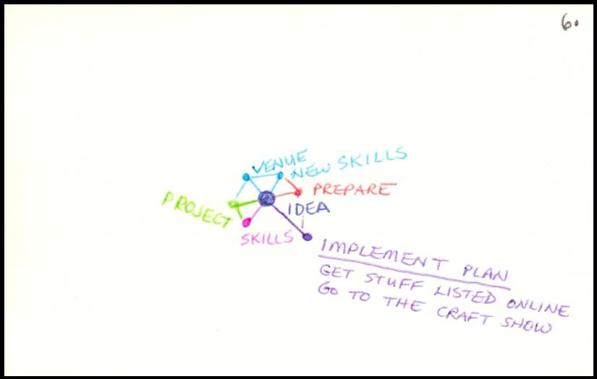 6.
VENUE
NEW SKILLS
PREPARE
PROJECT
IDEA
SKILLS
IMPLEMENT PLAN
GET STUFF LISTED ONLINE
GO TO THE CRAFT SHOW